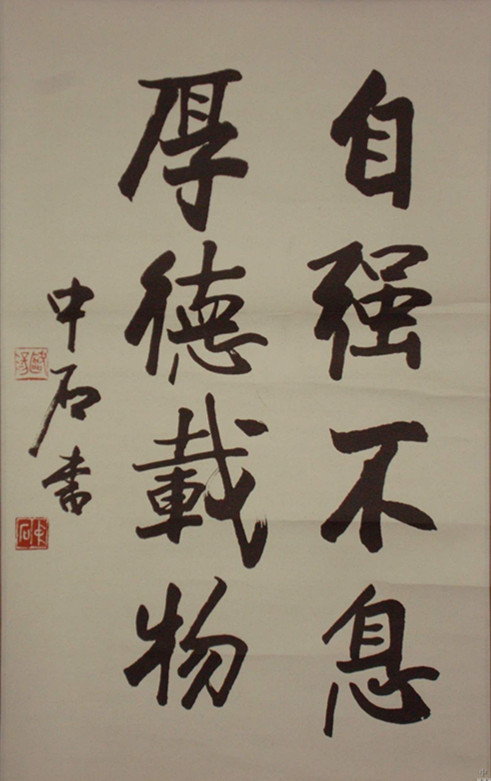 自强不息
厚德載物
中石書